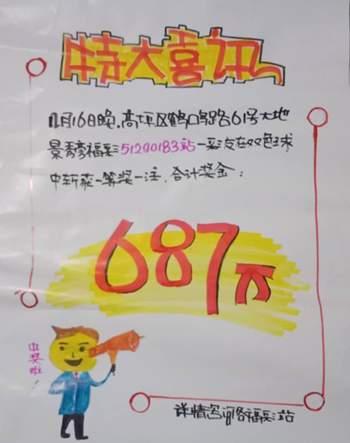 特大喜讯
11月16日晚,高坪区鹤鸣路61号大地
景秀福彩51290183站一彩友在双色球
中斩获一等奖一注,合计奖金:
687万
中奖啦!
详情各福彩站